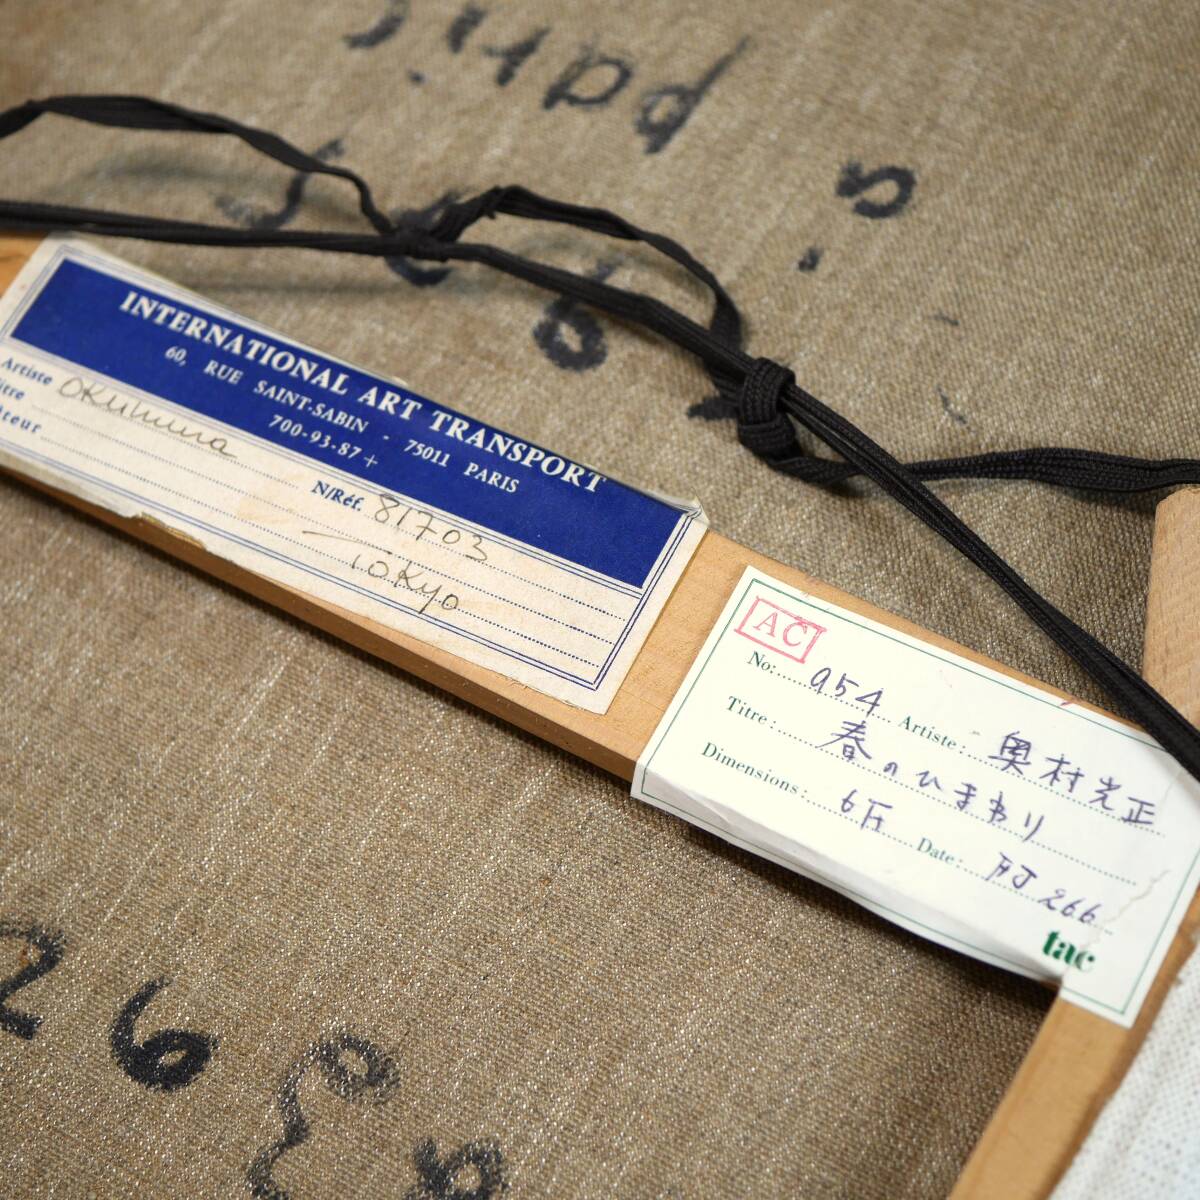 paris
s.
INTERNATIONAL ART TRANSPORT
60, RUE SAINT-SABIN - 75011 PARIS
700-93-87+
Artiste Okumura
itre
N/Réf. 81703
Tokyo
AC
No: 954 Artiste: 奥村光正
Titre: 春のひまわり
Dimensions: 6F Date:
266
tac
26